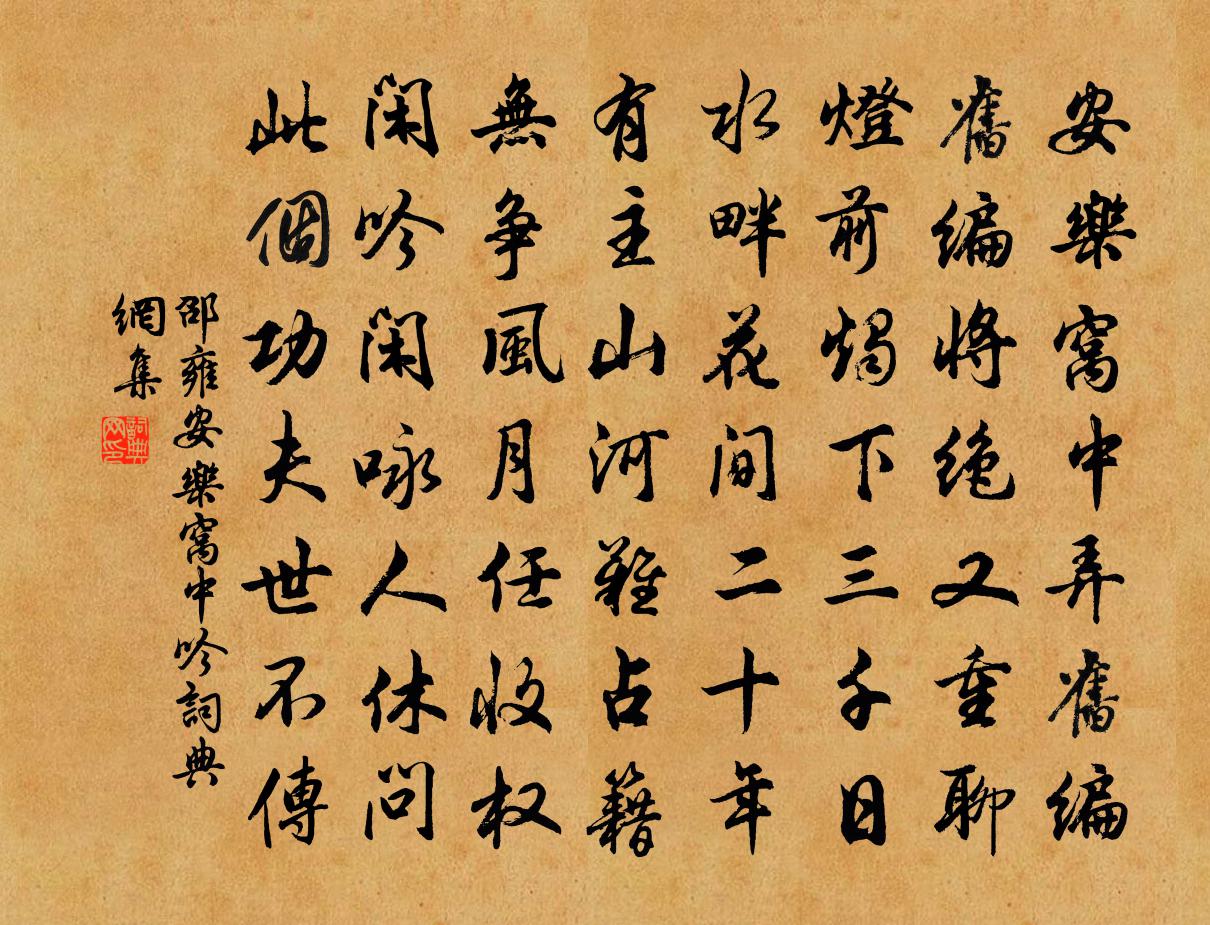 安樂窩中弄舊編
舊編將絶又重聊
燈前燭下三千日
水畔花間二十年
有主山河難占籍
無爭風月任收权
閑吟閑咏人休問
此個功夫世不傳
邵雍安樂窩中吟詞典
網集
詞典
网印